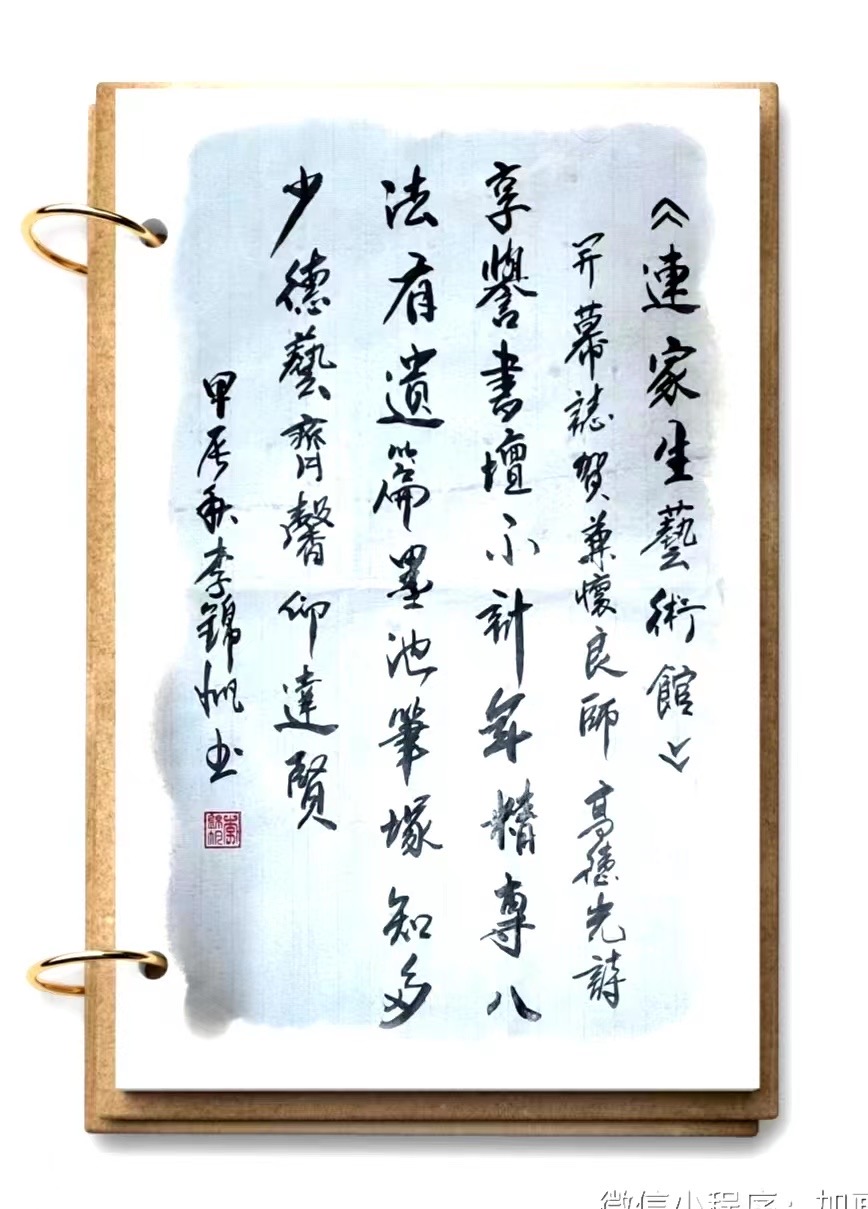 《連家生藝術館》
开幕誌賀兼懷良師 高德光詩
享譽書壇不計年精專八
法有遺篇墨池筆塚知多
少德藝齊馨仰達賢
甲辰秋李錦帆书
微信小程序：加